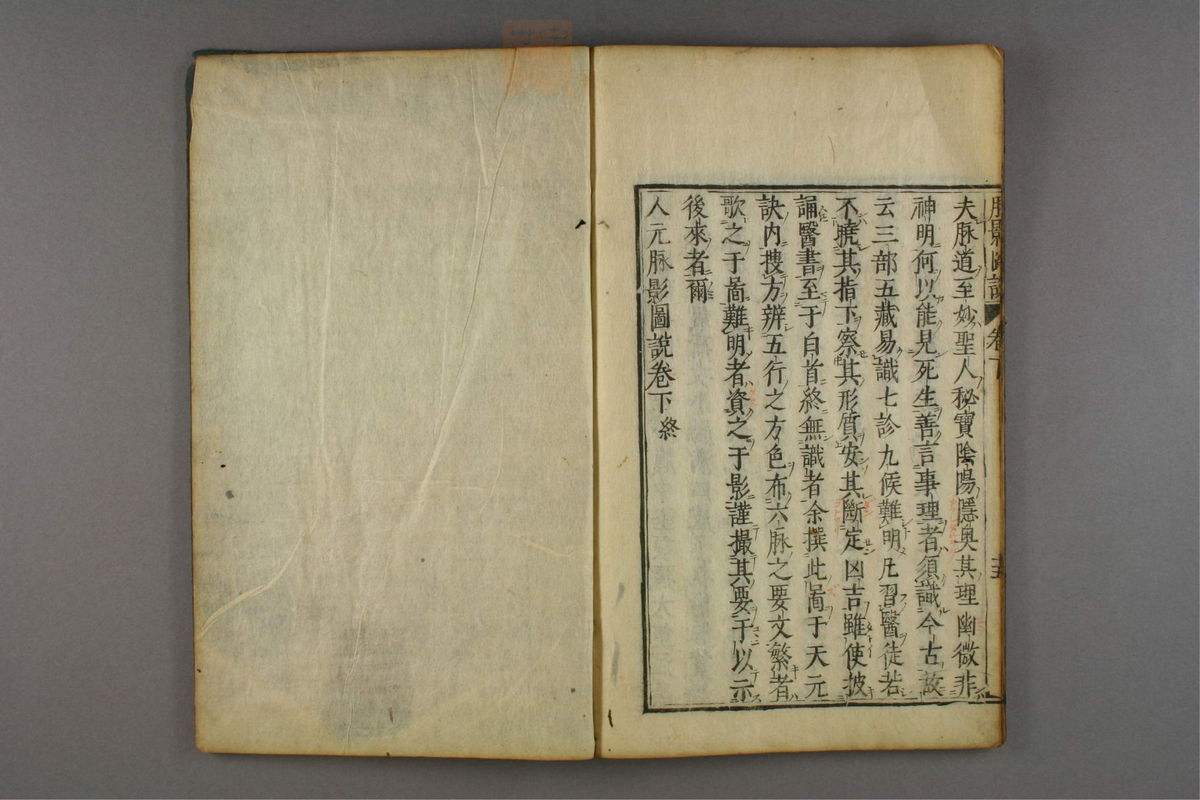 脉影圖説 卷下
夫脉道至妙聖人秘寶陰陽隱奥其理幽微非
神明何以能見死生善言事理者須識今古故
云三部五藏易識七診九候難明凡習醫徒若
不曉其指下察其形質安其斷定凶吉雖使披
誦醫書至于白首終無識者余撰此啚于天元
訣内搜方辨五行之方色布六脉之要文繁者
歌之于啚難明者資之于影謹撮其要于以示
後來者爾
人元脉影圖説卷下終